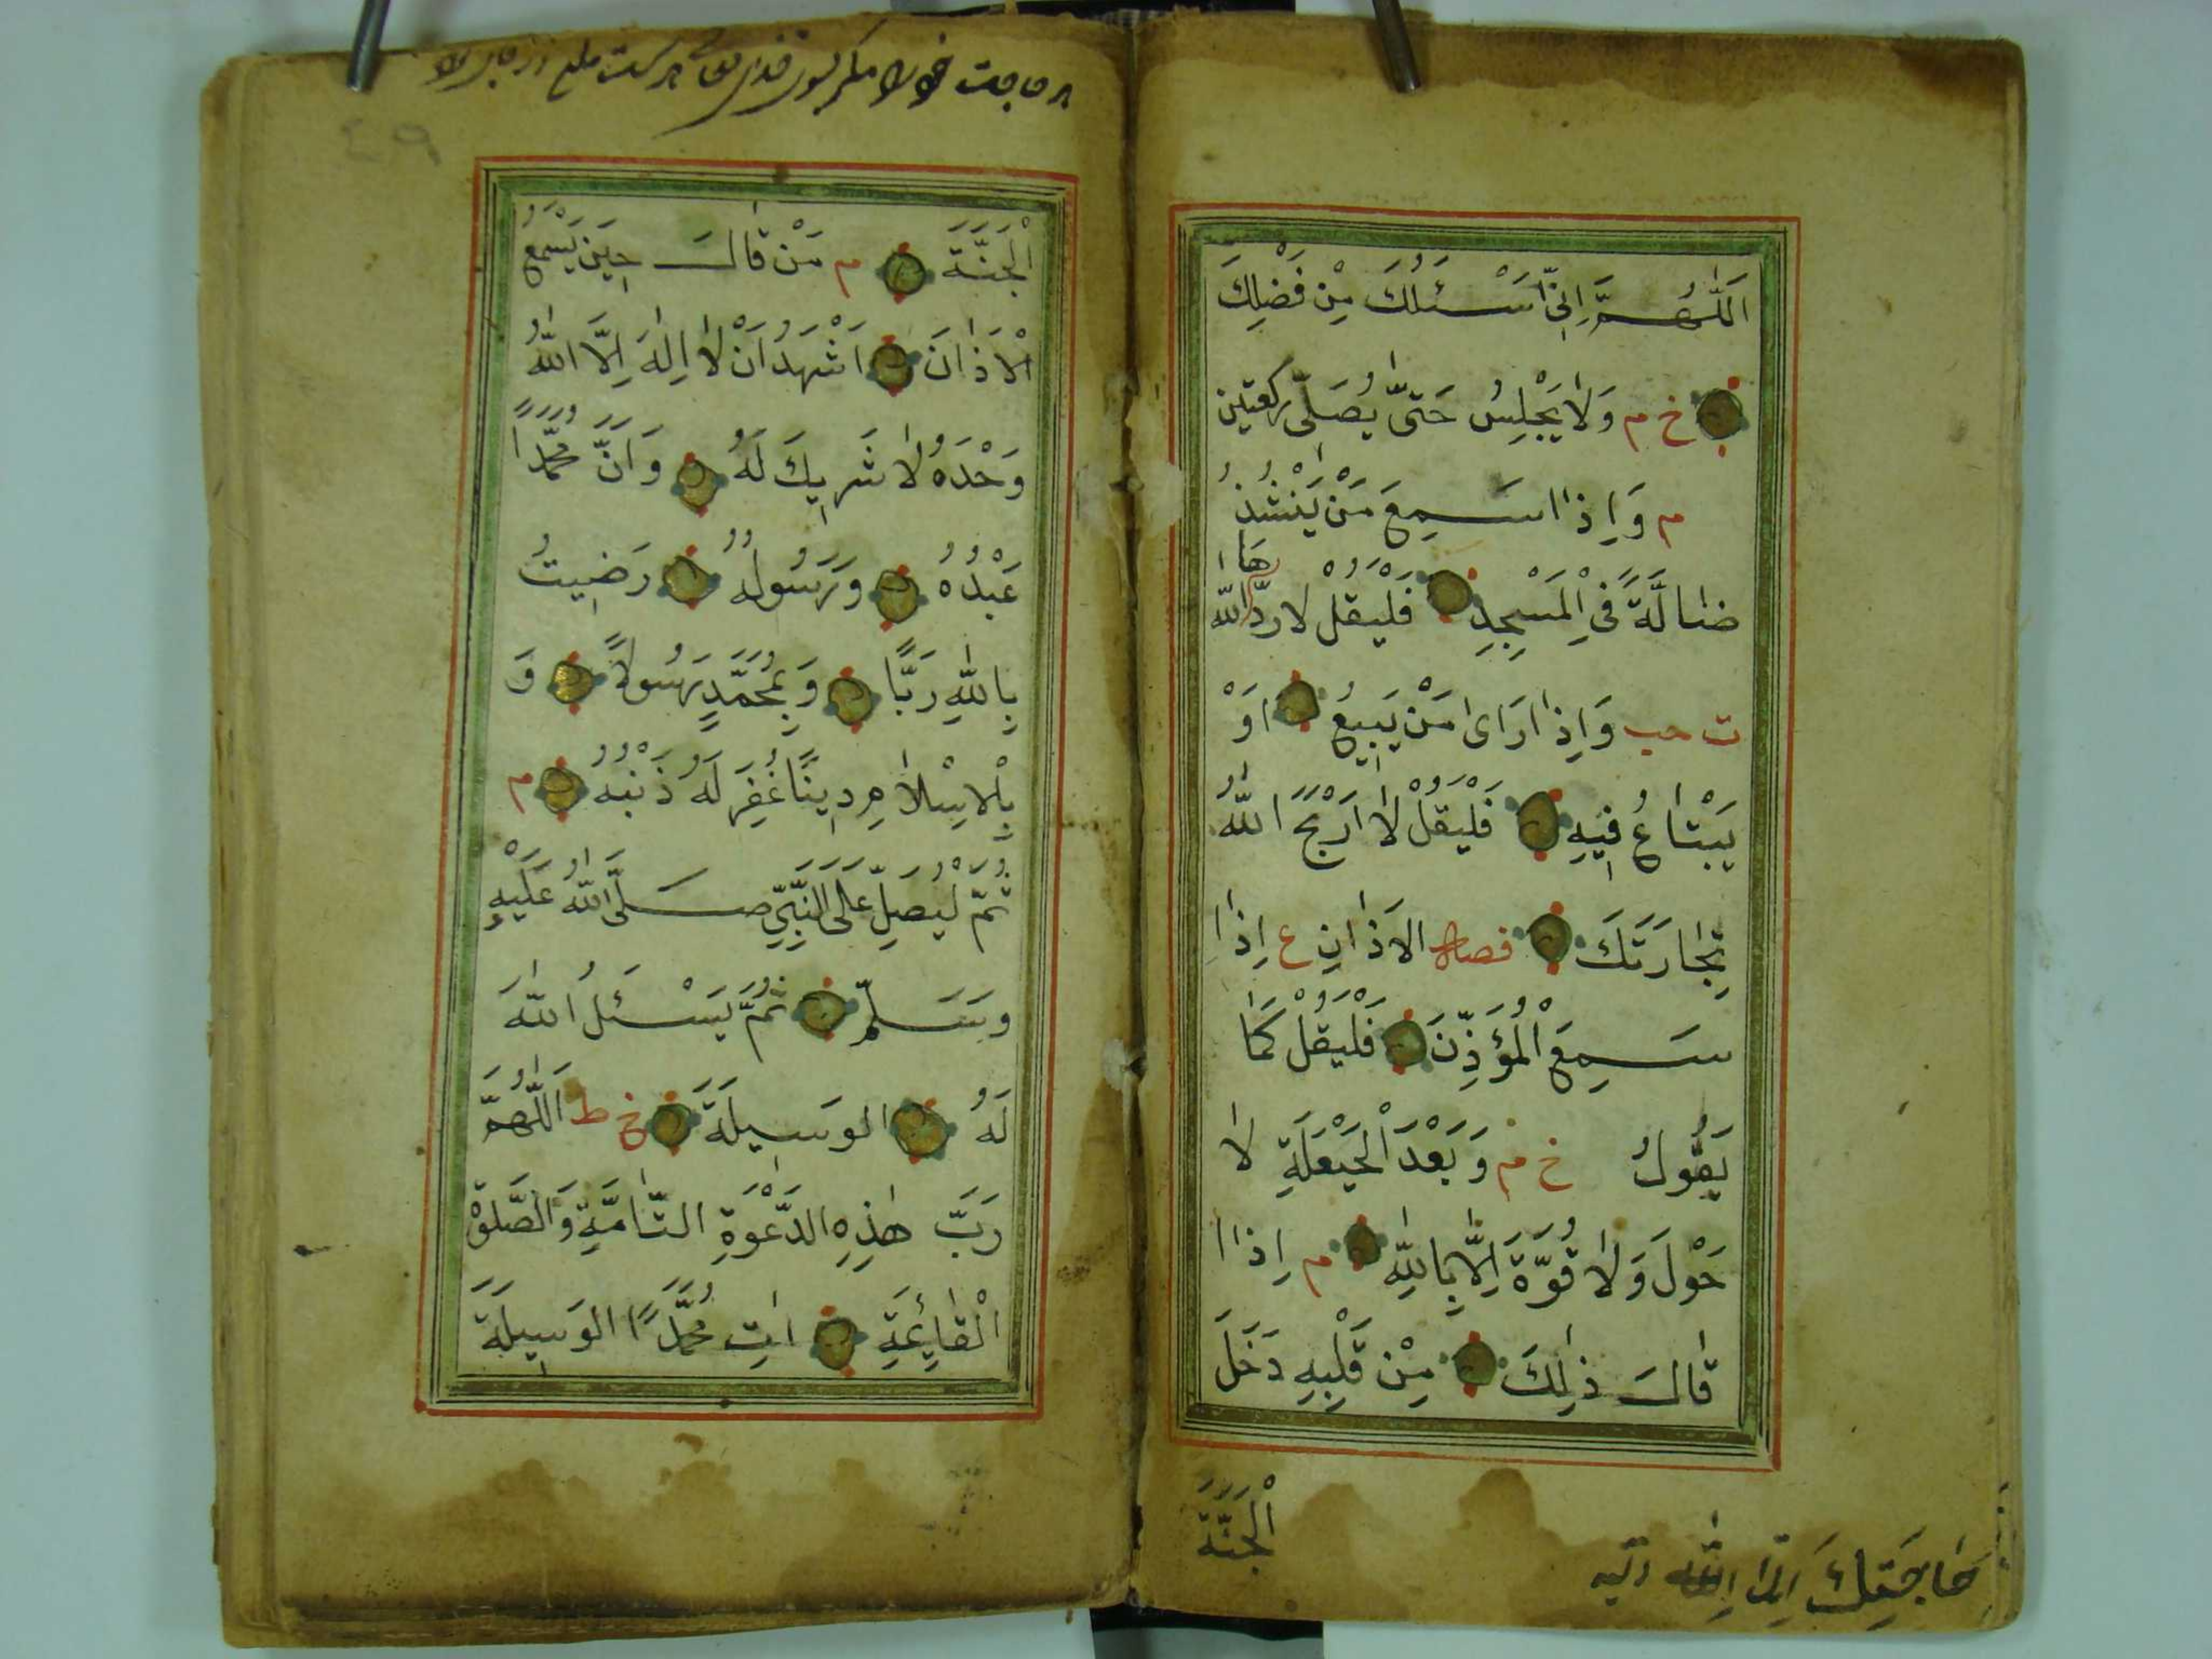 اَللّٰهُمَّ اِنّٖى اَسْـَٔلُكَ مِنْ فَضْلِكَ
خ م وَلَا يَجْلِسُ حَتّٰى يُصَلِّىَ ركعتين
م وَاِذَا سَمِعَ مَنْ يَنْشُدُ
هَا
ضَالَّةً فِى الْمَسْجِدِ فَلْيَقُلْ لَا ردّ الله
ت حب وَاِذَا رَاٰى مَنْ يَبٖيعُ اَوْ
يَبْتَاعُ فٖيهِ فَلْيَقُلْ لَا اَرْبَحَ اللّٰهُ
تِجَارَتَكَ فصل الاَذَانِ ع اِذَا
سَمِعَ الْمُؤَذِّنَ فَلْيَقُلْ كَمَا
يَقُولُ خ م وَبَعْدَ الْحَيْعَلَةِ لَا
حَوْلَ وَلَا قُوَّةَ اِلَّا بِاللّٰهِ م اِذَا
قَالَ ذٰلِكَ مِنْ قَلْبِهٖ دَخَلَ
الْجَنَّةَ
حَاجَتِكَ اِلَى اللّٰه
الْجَنَّةَ م مَنْ قَالَ حٖينَ يَسْمَعُ
الْاَذَانَ اَشْهَدُ اَنْ لَا اِلٰهَ اِلَّا اللّٰهُ
وَحْدَهُ لَا شَرٖيكَ لَهُ وَاَنَّ مُحَمَّدًا
عَبْدُهُ وَرَسُولُهُ رَضٖيتُ
بِاللّٰهِ رَبًّا وَبِمُحَمَّدٍ رَسُولًا وَ
بِالْاِسْلَامِ دٖينًا غُفِرَ لَهُ ذَنْبُهُ م
ثُمَّ لْيُصَلِّ عَلَى النَّبِىِّ صَلَّى اللّٰهُ عَلَيْهِ
وَسَلَّمَ ثُمَّ يَسْـَٔلُ اللّٰهَ
لَهُ الوَسٖيلَةَ خ ط اَللّٰهُمَّ
رَبَّ هٰذِهِ الدَّعْوَةِ التَّامَّةِ وَالصَّلٰوةِ
الْقَائِمَةِ اٰتِ مُحَمَّدًا الوَسٖيلَةَ